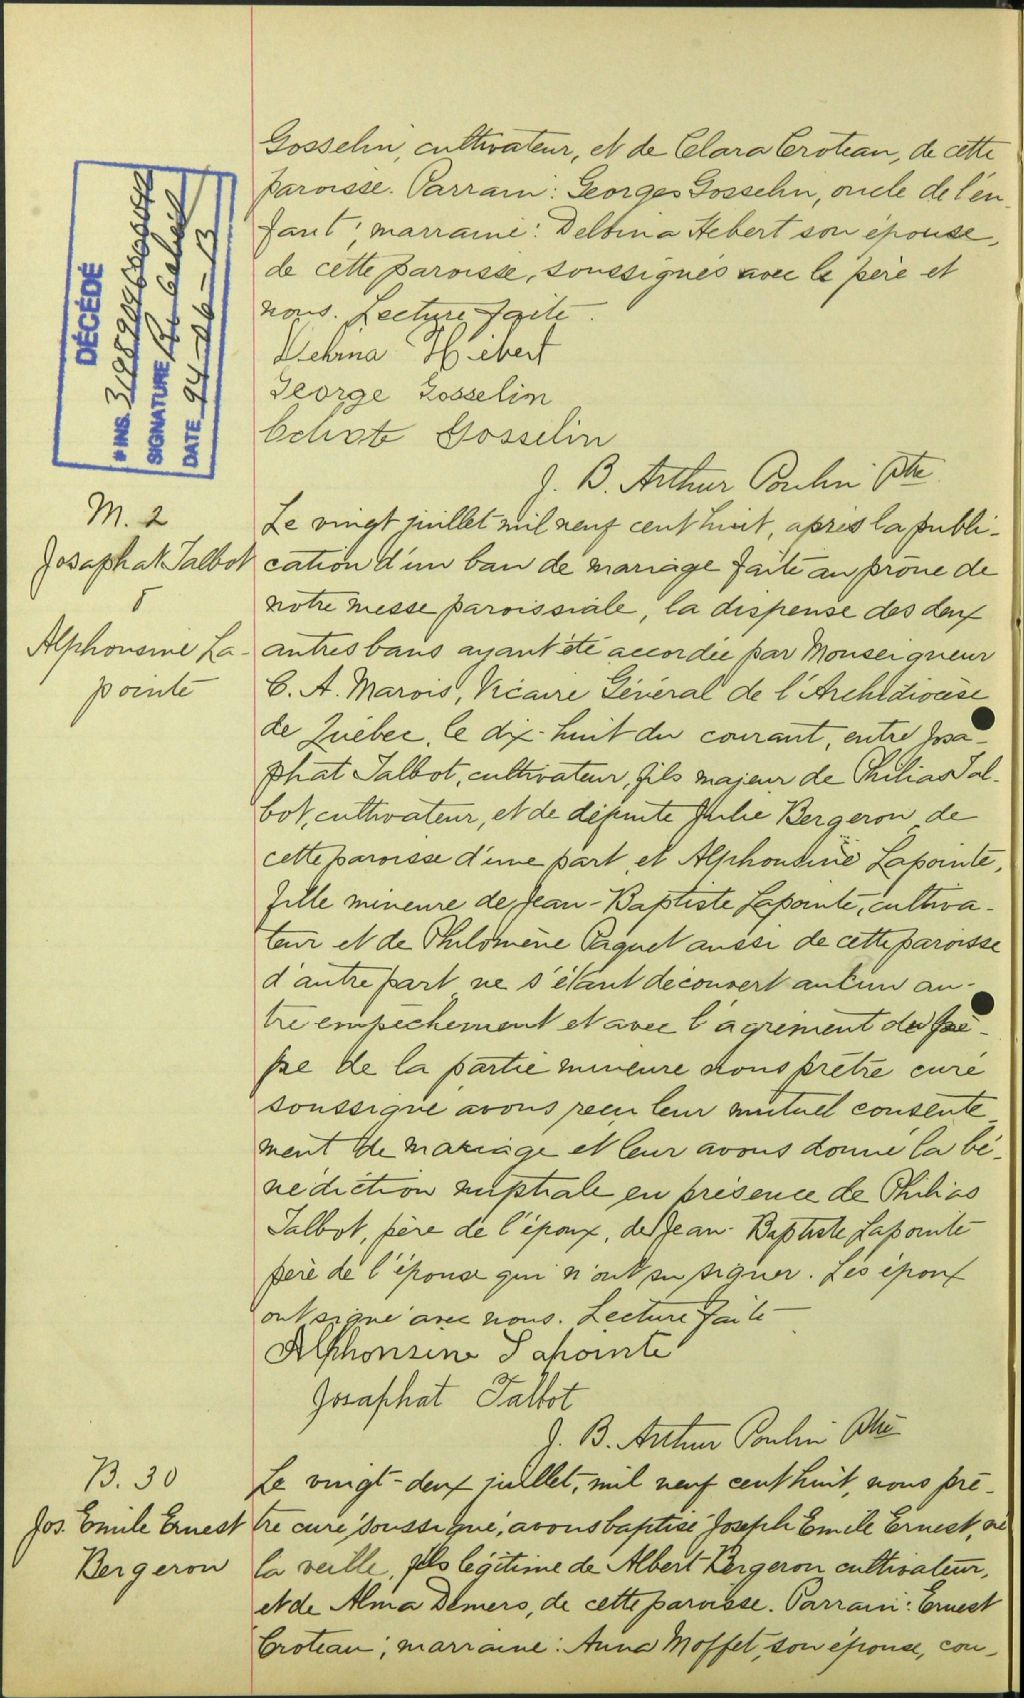 Gosselin, cultivateur, et de Clara Croteau, de cette
paroisse. Parrain: Georges Gosselin, oncle de l'en-
fant; marraine: Delvina Hebert son épouse,
de cette paroisse, soussignés avec le père et
nous. Lecture faite.
Delvina Hébert
George Gosselin
Gosselin
J. B. Arthur Poulin Ptre
DÉCÉDÉ
# INS.
SIGNATURE
DATE 94-06-13
M. 2
Josaphat Talbot
&
Alphonsine La-
pointe
Le vingt juillet mil neuf cent huit, après la publi-
cation d'un ban de mariage faite au prône de
notre messe paroissiale, la dispense des deux
autres bans ayant été accordée par Monseigneur
C. A. Marois, Vicaire Général de l'Archidiocèse
de Québec, le dix-huit du courant, entre Josa-
phat Talbot, cultivateur, fils majeur de Philias Tal-
bot, cultivateur, et de défunte Julie Bergeron, de
cette paroisse d'une part, et Alphonsine Lapointe,
fille mineure de Jean-Baptiste Lapointe, cultiva-
teur et de Philomène Paquet aussi de cette paroisse
d'autre part, ne s'étant découvert aucun au-
tre empêchement et avec l'agrément du pè-
re de la partie mineure nous prêtre curé
soussigné avons reçu leur mutuel consente-
ment de mariage et leur avons donné la bé-
nédiction nuptiale en présence de Philias
Talbot, père de l'époux, de Jean-Baptiste Lapointe
père de l'épouse qui n'ont su signer. Les époux
ont signé avec nous. Lecture faite
Alphonsine Lapointe
Josaphat Talbot
J. B. Arthur Poulin Ptre
B. 30
Jos. Emile Ernest
Bergeron
Le vingt-deux juillet, mil neuf cent huit, nous prê-
tre curé soussigné, avons baptisé Joseph Emile Ernest, né
la veille, fils légitime de Albert Bergeron cultivateur,
et de Alma Demers, de cette paroisse. Parrain: Ernest
Croteau; marraine: Anna Moffet, son épouse, cou-